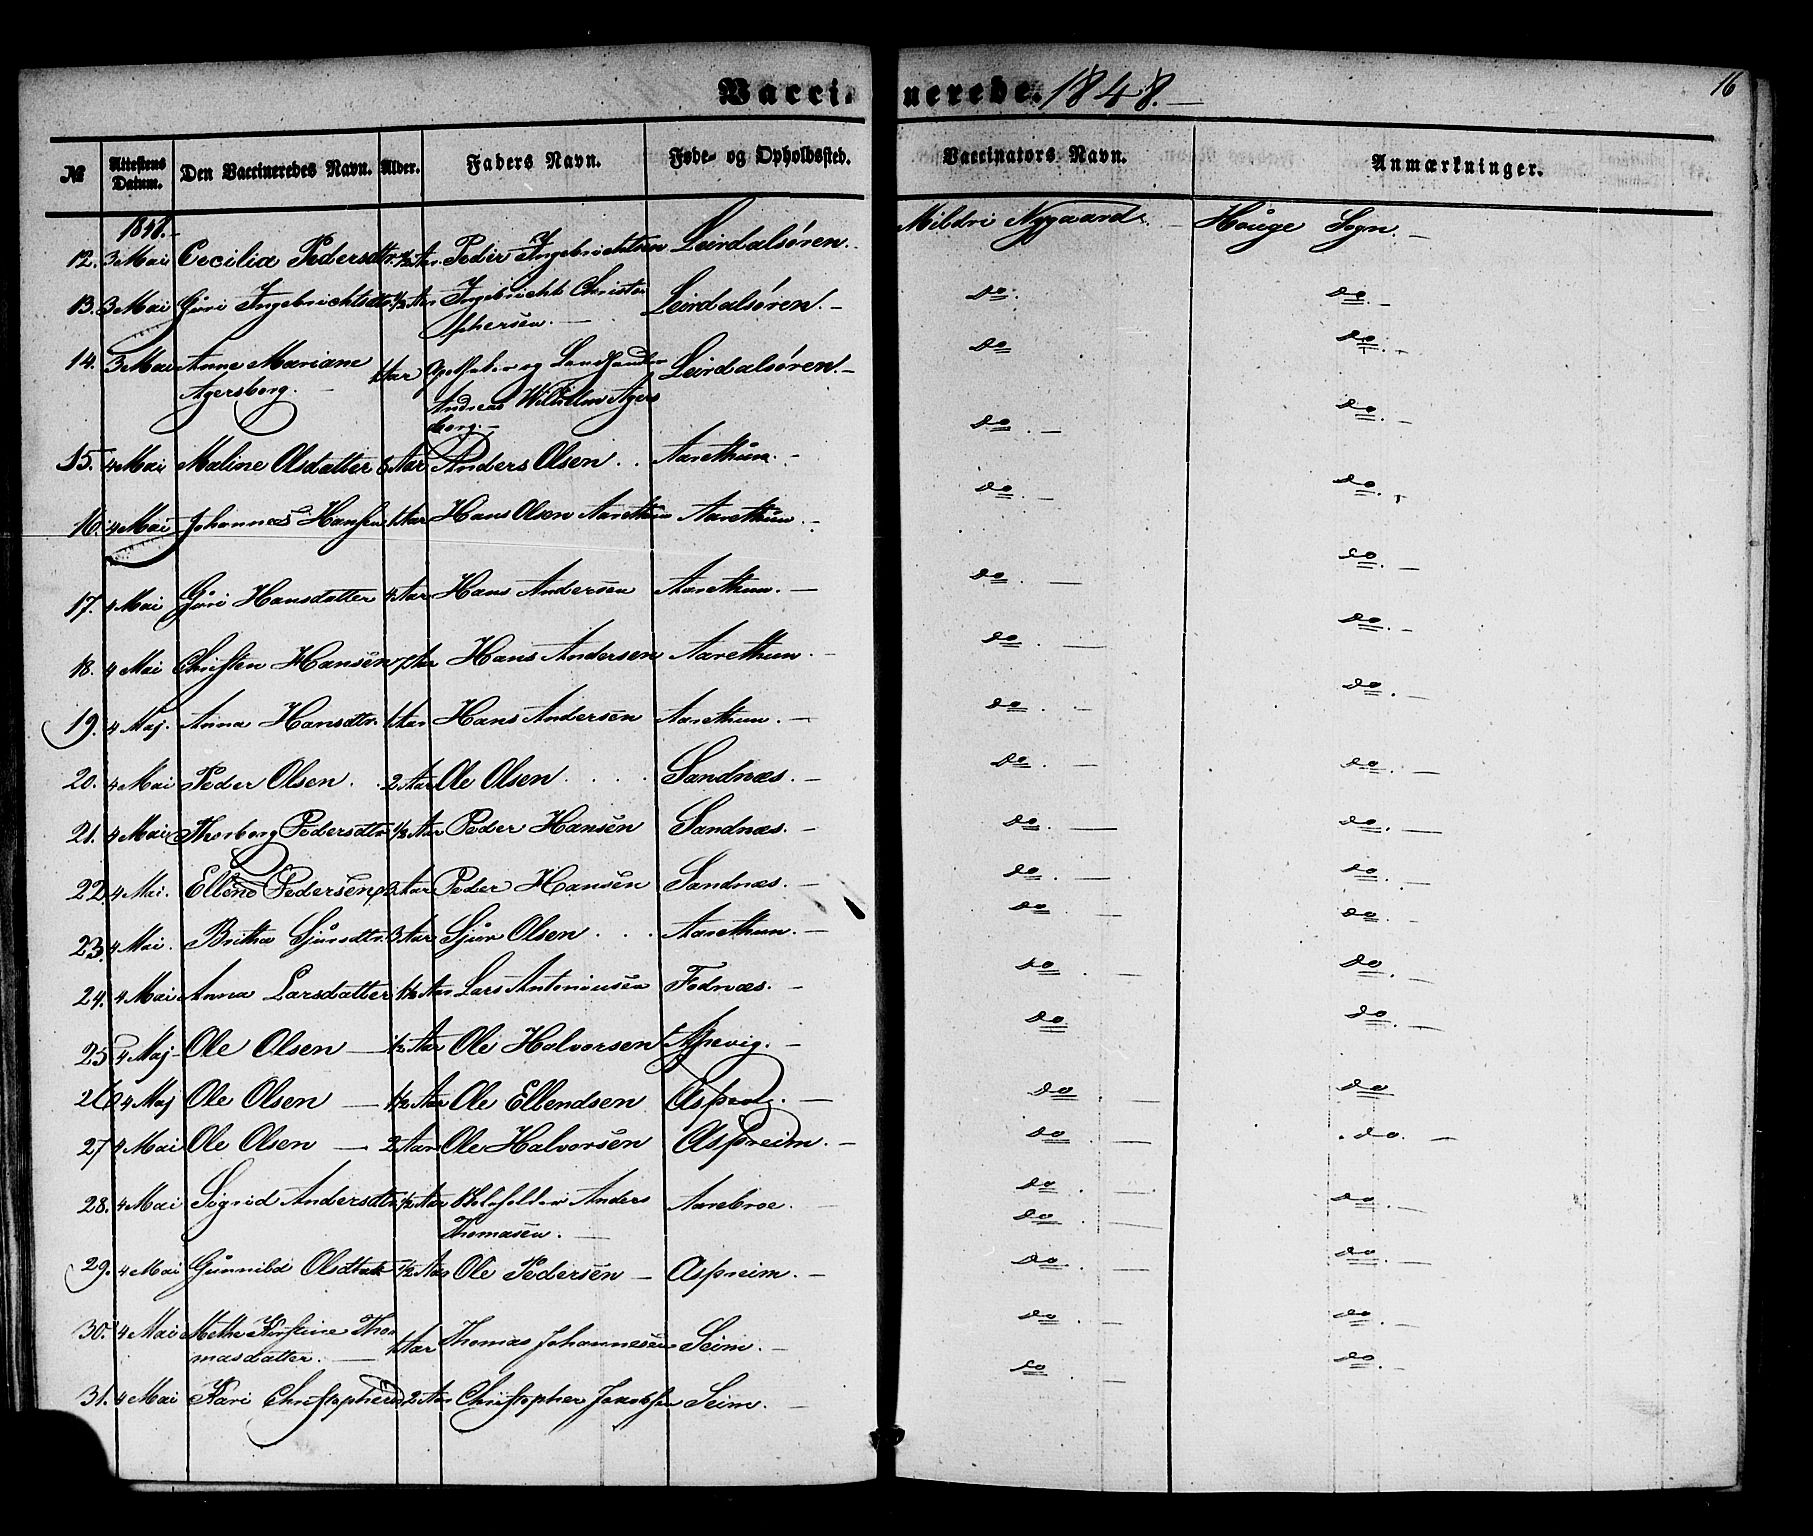 Vaccinerede. 1848.
16
№ Attestens Datum. Den Vaccineredes Navn. Alder. Faders Navn. Føde- og Opholdssted. Vaccinators Navn. Anmærkninger.
1848.
12. 3 Mai Cecilia Pedersdtr. 1/2 Aar Peder Ingebrichtsen Leirdalsøren. Mildri Nygaard. Hauge Sogn.
13. 3 Mai Guri Ingebrichtsdtr 1/2 Aar Ingebricht Christo Leirdalsøren. do. do.
phersen.
14. 3 Mai Anne Mariane 1 Aar Apotheker og Landhandler Leirdalsøren. do do.
Agersborg. Andreas Wilhelm Agers
borg.
15. 4 Mai Maline Olsdatter 6 Aar Anders Olsen Aarethun. do. do.
16. 4 Mai Johannes Hansen 1 Aar Hans Olsen Aarethun Aarethun. do. do.
17. 4 Mai Guri Hansdatter 4 Aar Hans Andersen Aarethun. do. do.
18. 4 Mai Christen Hansen 7 Aar Hans Andersen Aarethun. do. do.
19. 4 Maj. Anna Hansdtr. 1 Aar Hans Andersen Aarethun. do. do.
20. 4 Mai Peder Olsen. 2 Aar Ole Olsen. Sandnæs. do. do.
21. 4 Mai Thorborg Pedersdtr 1/2 Aar Peder Hansen Sandnæs. do. do.
22 4 Mai. Ellend Pedersen 2 Aar Peder Hansen Sandnæs. do. do.
23. 4 Mai. Britha Sjursdtr. 3 Aar Sjur Olsen Aarethun. do. do.
24. 4 Mai Anna Larsdatter 1/2 Aar Lars Antoniusen Fodnæs. do. do.
25 4 Maj Ole Olsen 1/2 Aar Ole Halvorsen do do.
26 4 Maj Ole Olsen 1 1/2 Aar Ole Ellendsen do. do
27 4 Mai Ole Olsen 2 Aar Ole Halvorsen Aspreim. do. do.
28. 4 Mai Sigrid Andersdtr. 1/2 Aar Anders Aarebroe. do. do.
Thomasen. do.
29. 4 Mai Gunnild Olsdtatr 1/2 Aar Ole Pedersen Aspreim. do. do.
30. 4 Mai Methe Kirstine Tho 1 Aar Thomas Johannesen Seim. do. do.
masdatter.
31. 4 Mai Kari 2 Aar Christopher Jacobsen Seim. do do.